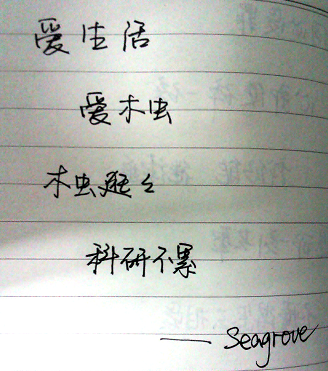 爱生活
爱木虫
木虫逛々
科研不累
—— Seagrove